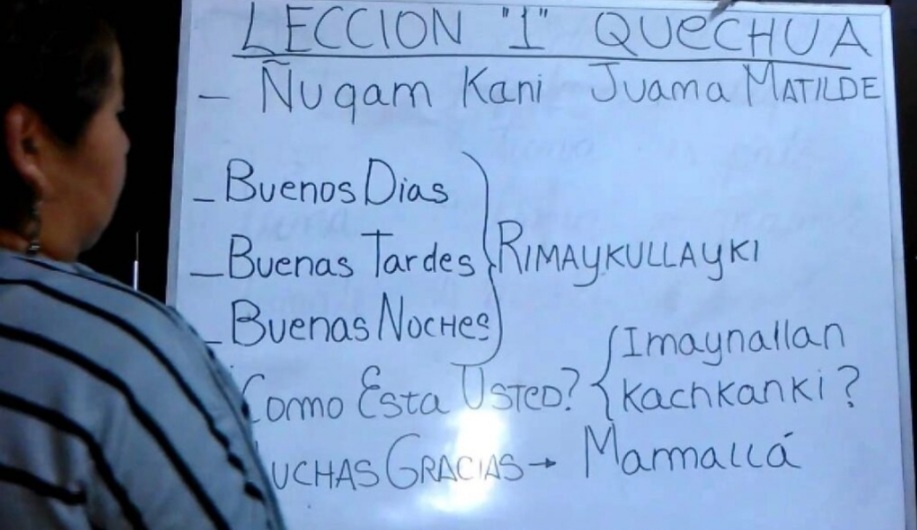 LECCION "1" QUECHUA
- Ñuqam Kani Juama MATILDE
- Buenos Dias
- Buenas Tardes
RIMAYKULLAYKI
- Buenas Noches
Como Esta Usted?
Imaynallan
Kachkanki?
UCHAS GRACIAS → Mamallá